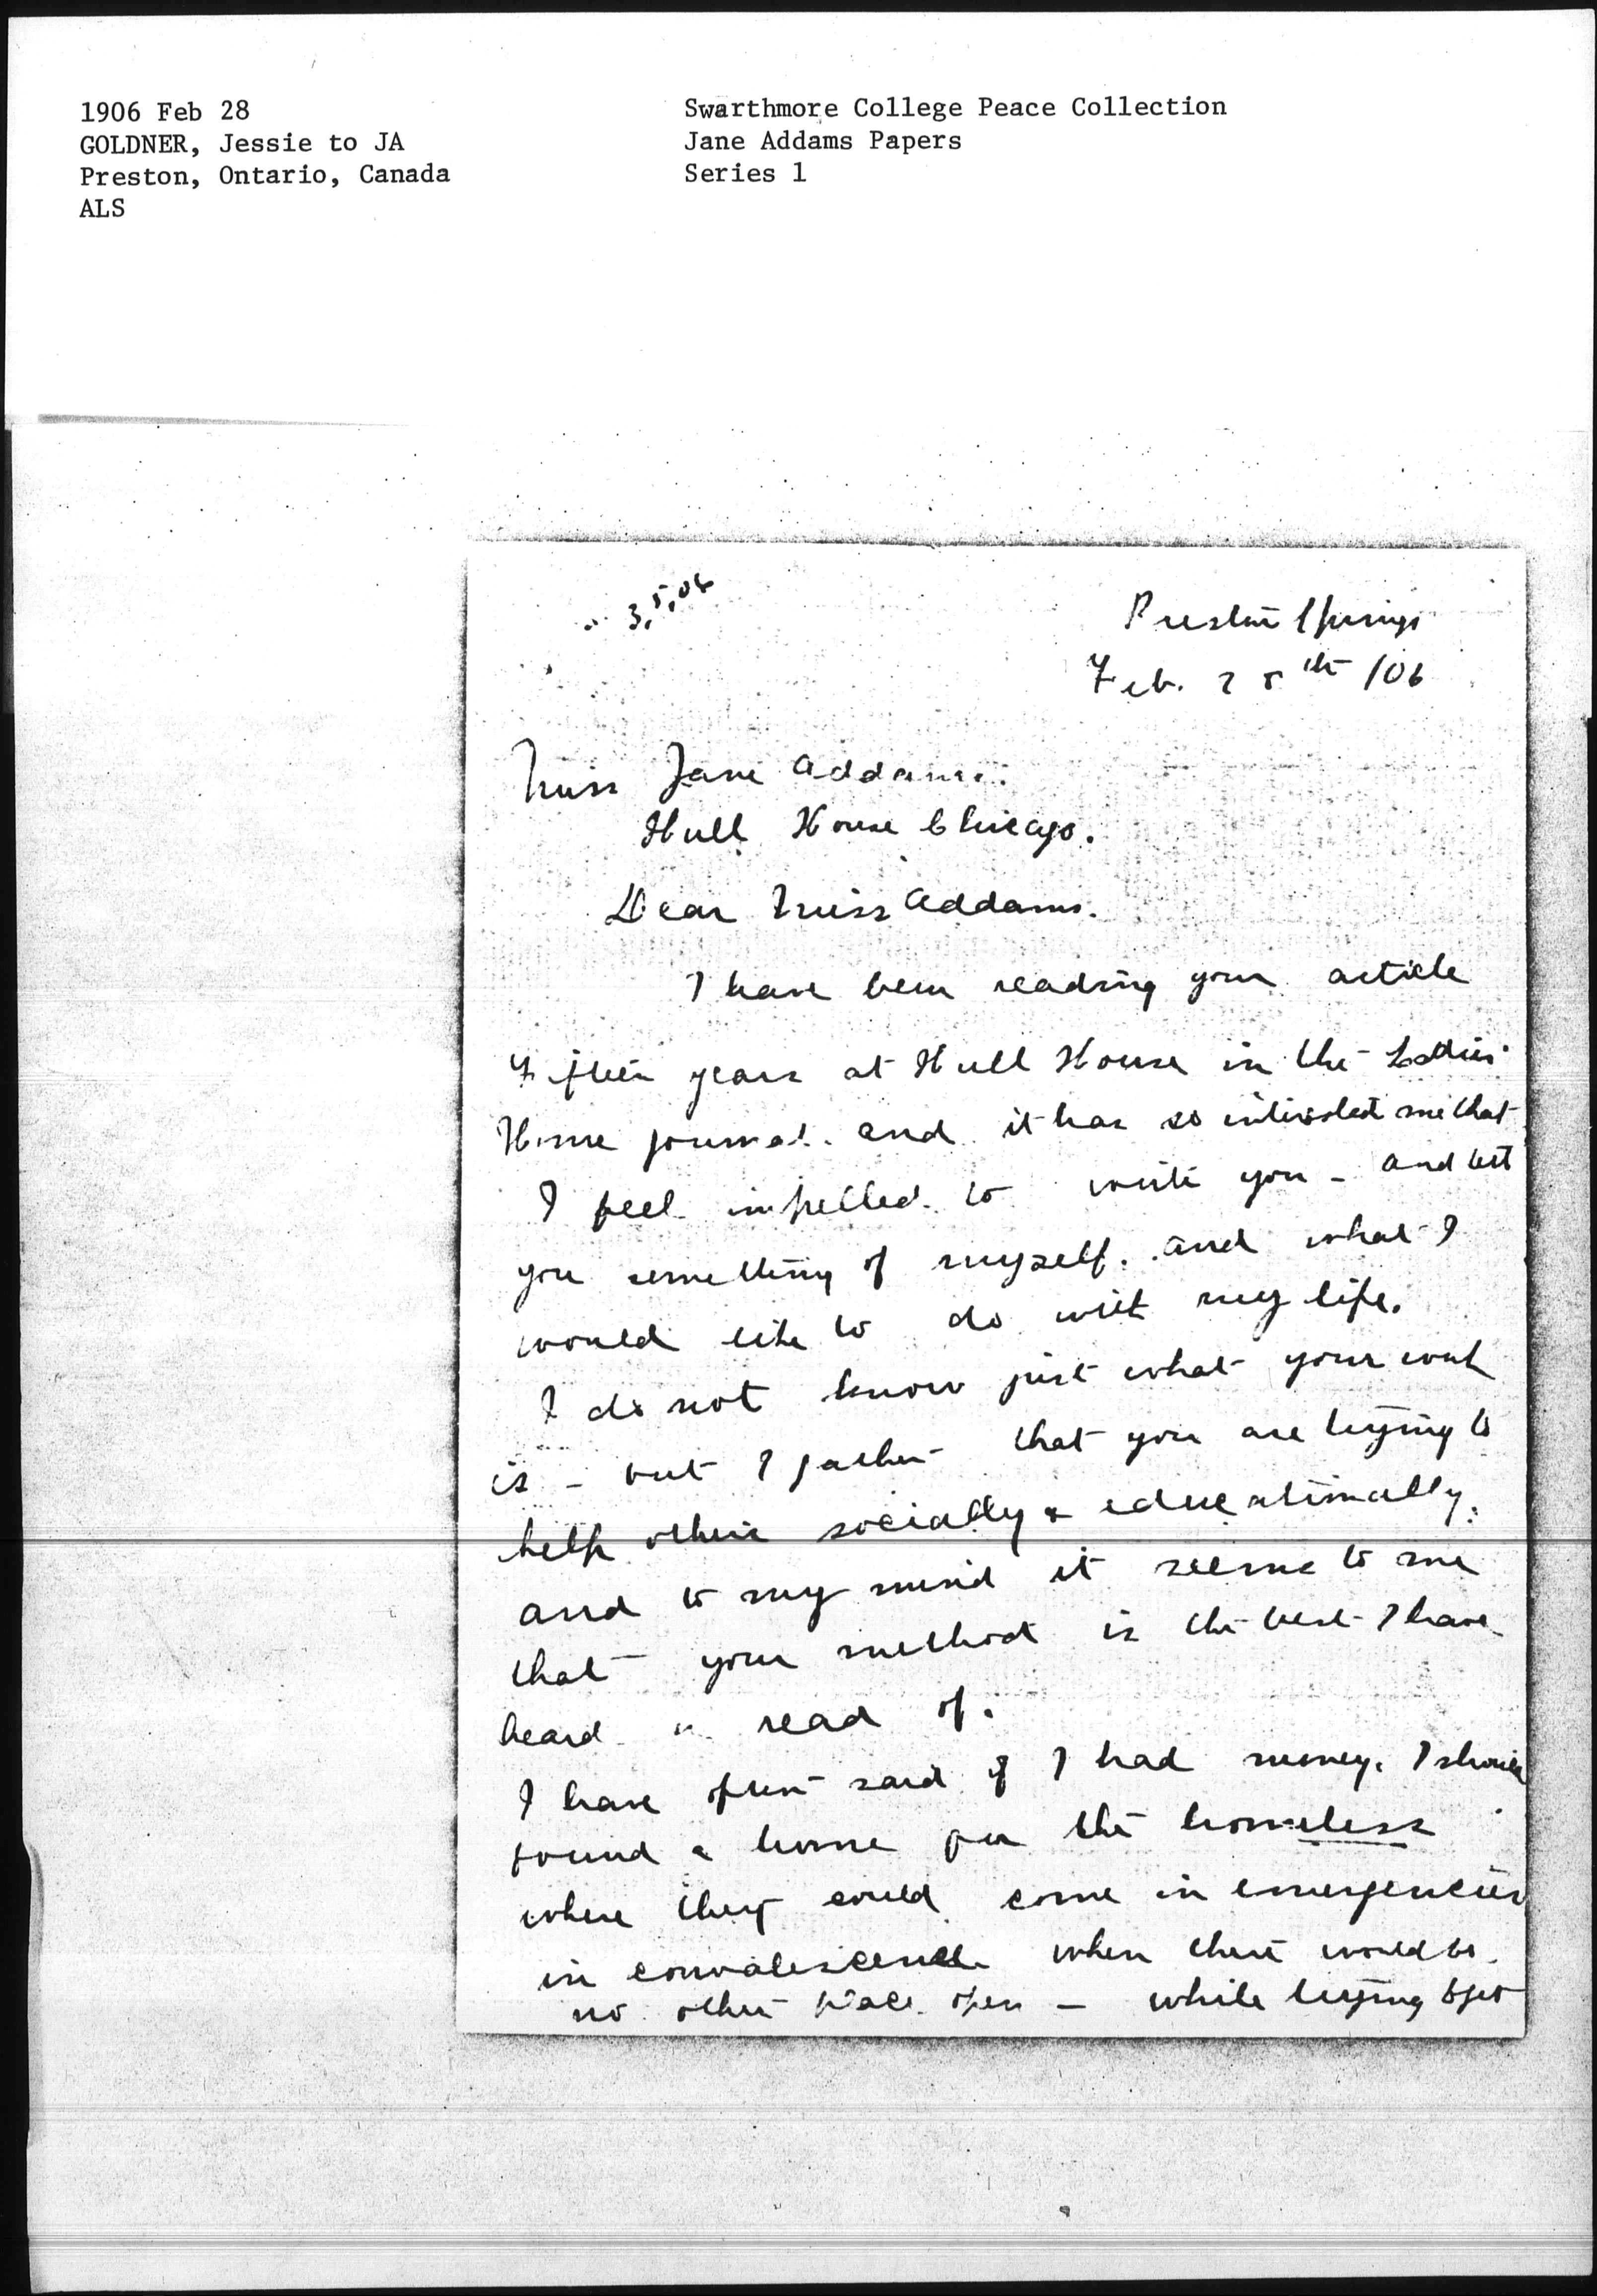 1906 Feb 28
GOLDNER, Jessie to JA
Preston, Ontario, Canada
ALS
Swarthmore College Peace Collection
Jane Addams Papers
Series 1
3.5.06
Preston Springs
Feb. 28th /06
Miss Jane Addams.
Hull House Chicago.
Dear Miss Addams.
I have been reading your article
Fifteen years at Hull House in the Ladies'
Home journal. and it has so interested me that
I feel impelled to write you - and tell
you something of myself. and what I
would like to do with my life.
I do not know just what your work
is - but I gather that you are trying to
help others socially & educationally.
and to my mind it seems to me
that your method is the best I have
heard or read of.
I have often said if I had money. I should
found a home for the homeless
where they could come in emergencies
in convalescence when there would be
no other place open - while trying to get